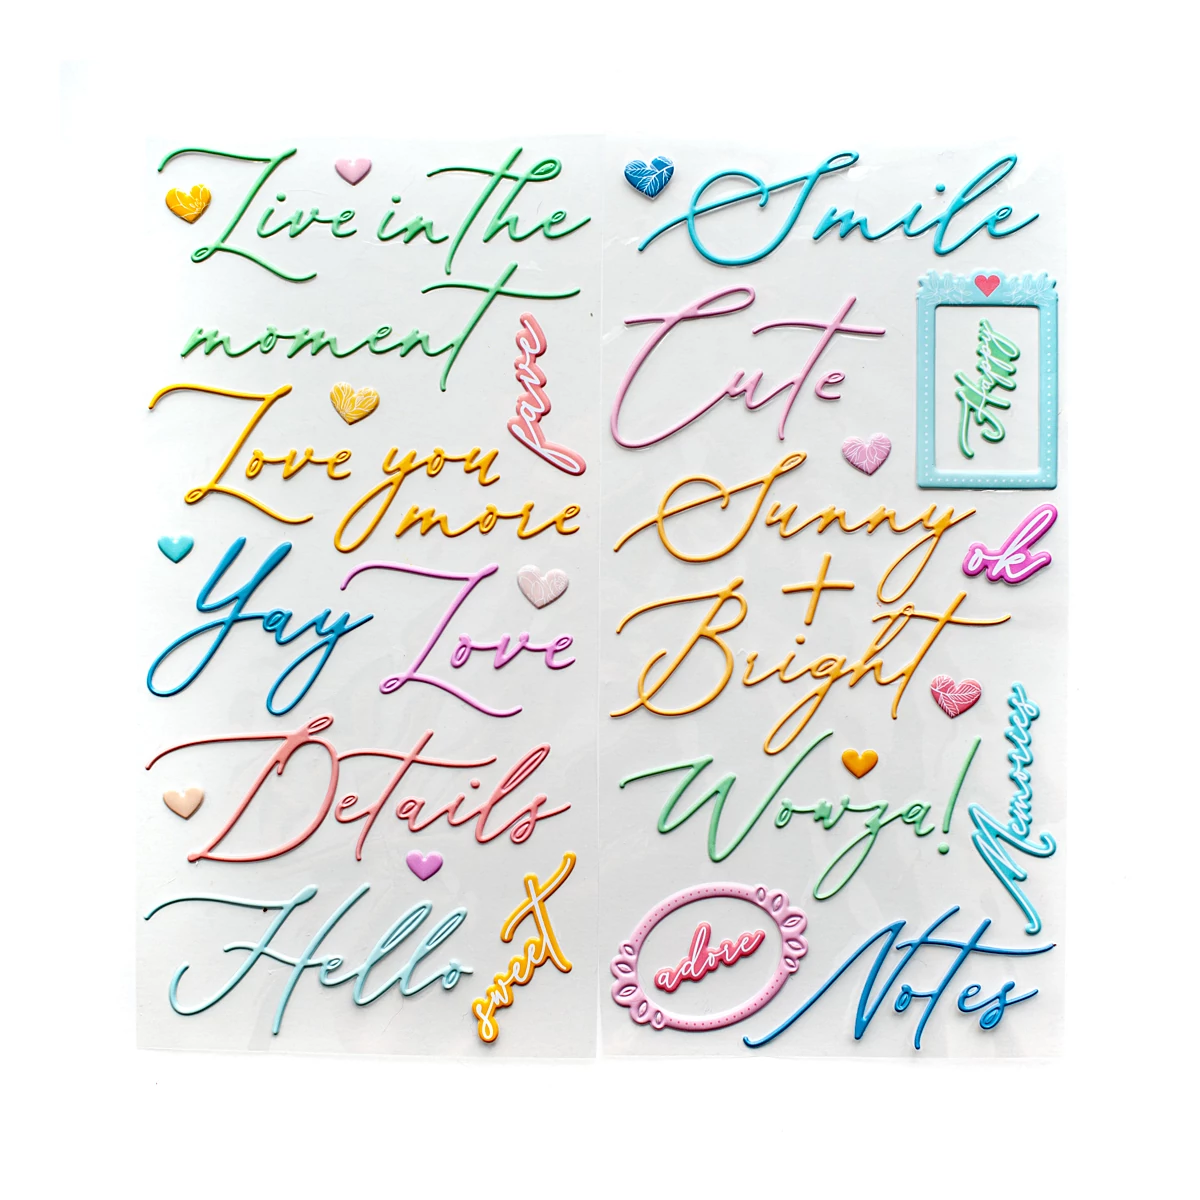 Live in the
moment
fave
Love you
more
Yay
Love
Details
Hello
sweet
Smile
Cute
Happy
Sunny
ok
+
Bright
Memories
Wowza!
adore
Notes